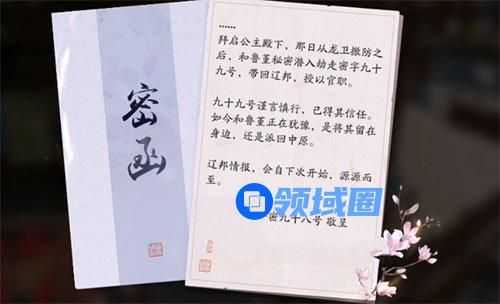 密函
……
拜启公主殿下，那日从龙卫撤防之
后，和鲁堇秘密潜入劫走密字九十
九号，带回辽邦，授以官职。
九十九号谨言慎行，已得其信任。
如今和鲁堇正在犹豫，是将其留在
身边，还是派回中原。
辽邦情报，会自下次开始，源源而
至。
领域圈
密九十八号 敬呈